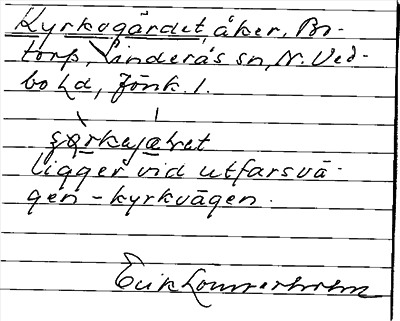 Kyrkogärdet, åker, Bo-
torp, Linderås sn, N. Ved-
bo hd, Jönk. l.
ligger vid utfarsvä-
gen - kyrkvägen.
Erik Lonnerholm